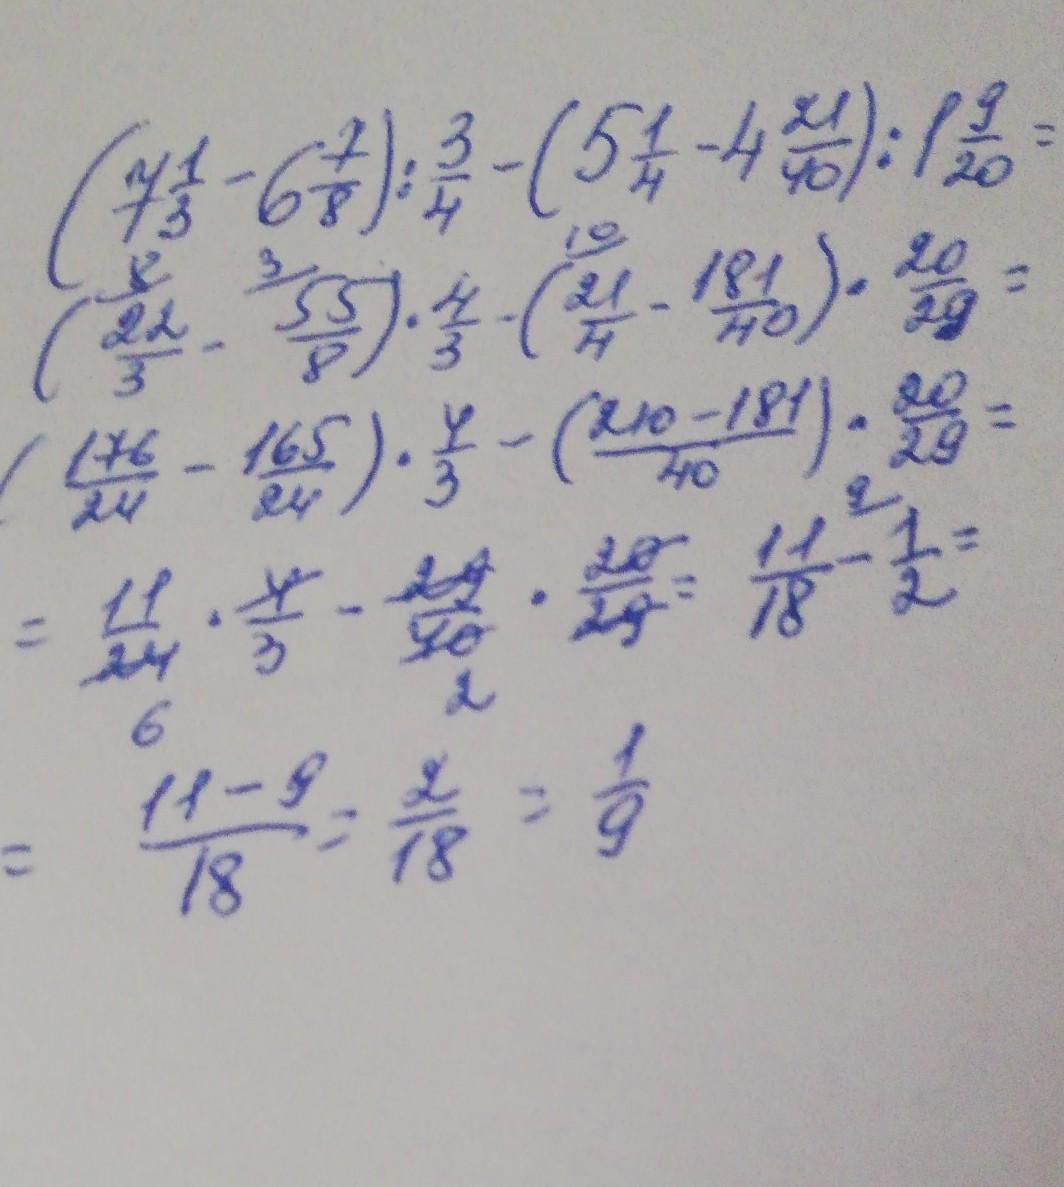 (7 1/3 - 6 7/8) : 3/4 - (5 1/4 - 4 21/40) : 1 9/20 =
(8 22/3 - 3 55/8) · 4/3 - (10 21/4 - 181/40) · 20/29 =
(176/24 - 165/24) · 4/3 - (210 - 181)/40) · 20/29 =
= 11/24 6 · 4/3 - 29/40 2 · 20/29 = 11/18 - 9 1/2 =
= 11 - 9/18 = 2/18 = 1/9